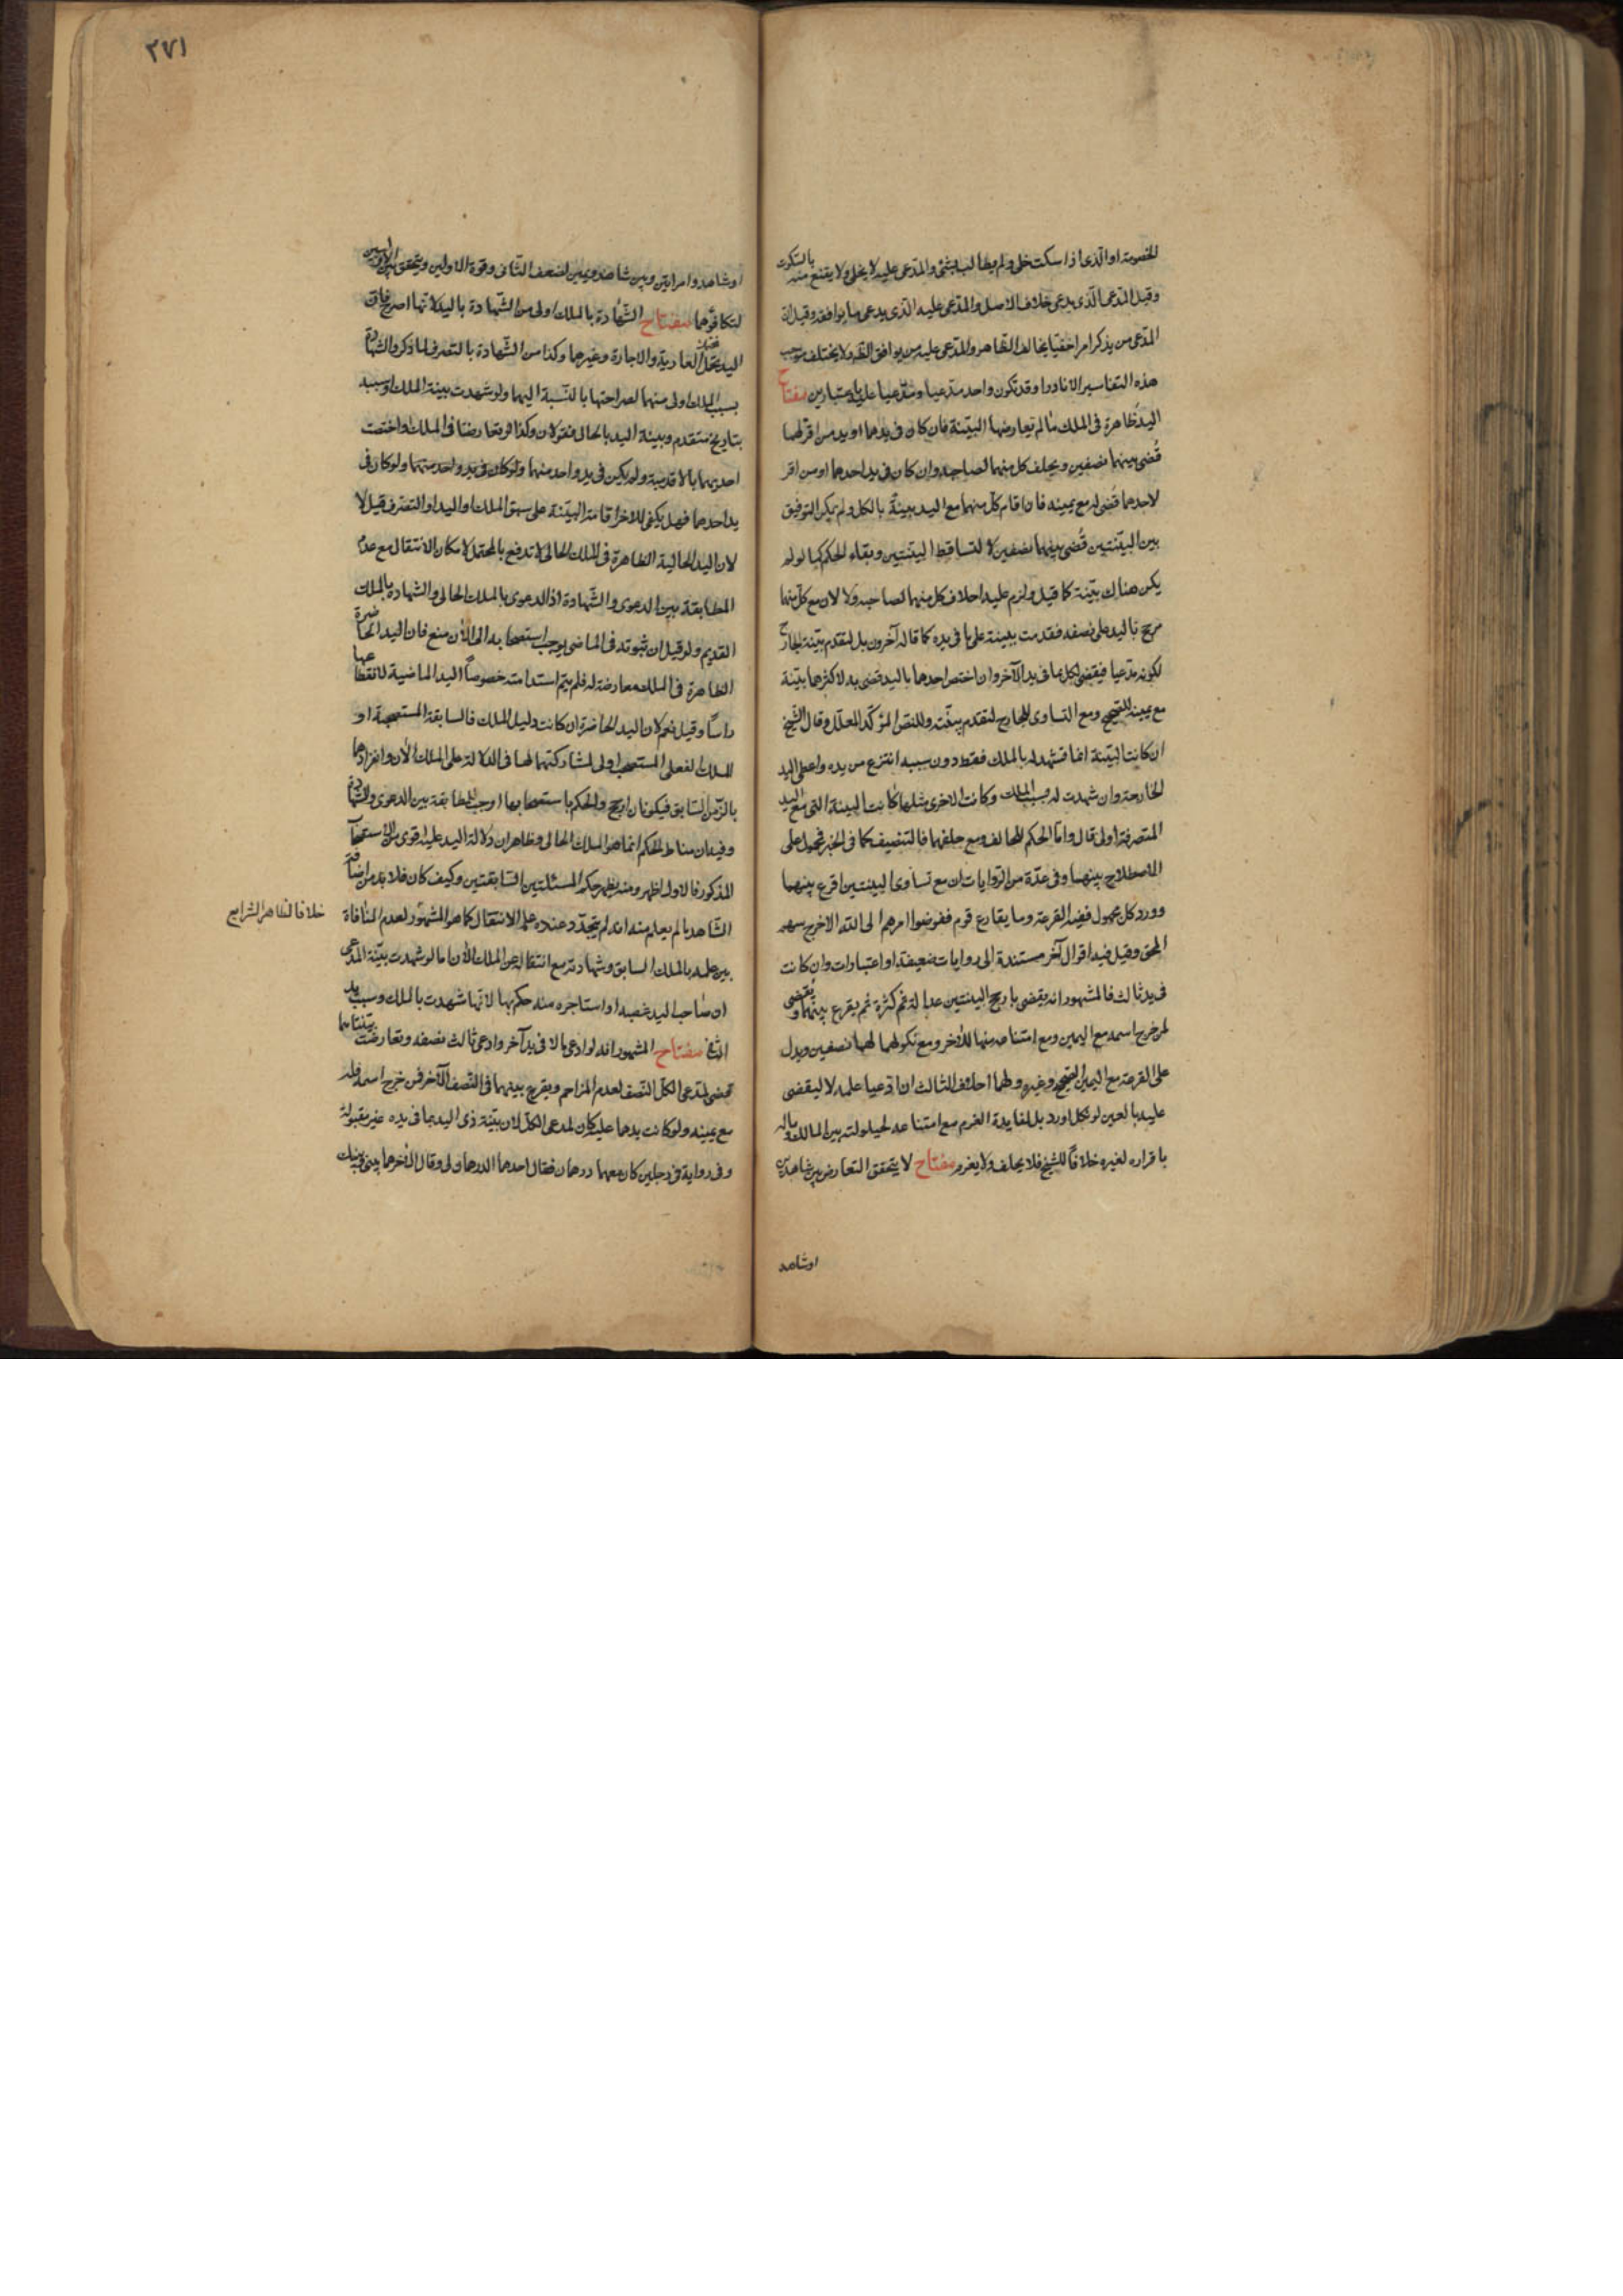 الخصومة او الذى اذا سكت خلى ولم يطالب بشئ والمدعى عليه لا يخلى ولا يقنع منه بالسكوت
وقيل المدعى الذى يدعى خلاف الاصل والمدعى عليه الذى يدعى ما يوافقه وقيل ان
المدعى من يذكر امرا خفيا يخالف الظاهر والمدعى عليه من يوافق الظ ولا يختلف موجب
هذه التفاسير الا نادرا وقد تكون واحد مدعيا ومدعيا عليه باعتبارين مفتاح
اليد ظاهرة فى الملك ما لم تعارضها البينة فان كان فى يدهما او يد من اقر لهما
قُضى بينهما نصفين ويحلف كل منهما لصاحبه وان كان فى يد احدهما او من اقر
لاحدهما قُضى له مع يمينه فان اقام كل منهما مع اليد بينة بالكل ولم يمكن التوفيق
بين البينتين قُضى بينهما نصفين لا لتساقط البينتين وبقاء الحكم كما لو لم
يكن هناك بينة كما قيل ولزم عليه احلاف كل منهما لصاحبه ولا لان مع كل منهما
مرجح باليد على نصفه فقدمت بينته على ما فى يده كما قاله آخرون بل لتقدم بينة الخارج
لكونه مدعيا فيقضى لكل بما فى يد الآخر وان اختص احدهما باليد قضى به لاكثرهما بينة
مع يمينه للصحيح ومع التساوى للخارج لتقدم بينته وللنص المؤكد المعلل وقال الشيخ
ان كانت البينة انما تشهد له بالملك فقط دون سببه انتزع من يده واعطى اليد
الخارجة وان شهدت له بسبب الملك وكانت الاخرى مثلها كانت البينة التى مع اليد
المتصرفة اولى قال واما الحكم للحالف ومع حلفهما فالتنصيف كما فى الخبر فمحمول على
الاصطلاح بينهما وفى عدة من الروايات ان مع تساوى البينتين اقرع بينهما
وورد كل مجهول ففيه القرعة وما يقارع قوم ففوضوا امرهم الى الله الا خرج سهم
المحق وقيل فيه اقوال آخر مستندة الى روايات ضعيفة او اعتبارات وان كانت
فى يد ثالث فالمشهور انه يقضى بارجح البينتين عدالة ثم كثرة ثم يقرع بينهما ويقضى
لمن خرج اسمه مع اليمين ومع امتناعه منها للآخر ومع نكولهما لهما نصفين ويدل
على القرعة مع اليمين الصحيح وغيره ولهما احلاف الثالث ان ادعيا علمه لا ليقضى
عليه بالعين لو نكل او رد بل لفايدة الغرم مع امتناعه لحيلولته بين المالك وماله
باقراره لغيره خلافاً للشيخ فلا يحلف ولا يغرم مفتاح لا يتحقق التعارض بين شاهدين
اوشاهد
٣٧١
او شاهد وامراتين وبين شاهد ويمين لضعف الثانى وقوة الاولين ويتحقق بين الاولين
لتكافؤهما مفتاح الشهادة بالملك اولى من الشهادة باليد لانها اصرح فان
اليد تحتمل العارية والاجارة وغيرهما وكذا من الشهادة بالتصرف لما ذكر والشهادة
بسبب الملك اولى منهما لصراحتها بالنسبة اليهما ولو شهدت بينة الملك او سببه
بتاريخ متقدم وبينة اليد بالحال فقولان وكذا لو تعارضتا فى الملك واختصت
احديهما بالاقدمية ولم يكن فى يد واحد منهما ولو كان فى يد واحد منهما ولو كان فى
يد احدهما فهل يكفى للآخر اقامة البينة على سبق الملك او اليد او التصرف قيل لا
لان اليد الحالية الظاهرة فى الملك الحالى لا تدفع بالمحتمل لامكان الانتقال مع عدم
المطابقة بين الدعوى والشهادة اذ الدعوى بالملك الحالى والشهادة بالملك
القديم ولو قيل ان ثبوته فى الماضى يوجب استصحابه الى الآن منع فان اليد الحاضرة
الظاهرة فى الملك معارضة له فلم يتم استدامته خصوصاً اليد الماضية لانقطاعها
راساً وقيل نعم لان اليد الحاضرة ان كانت دليل الملك فالسابقة المستصحبة او
الملك الفعلى المستصحب اولى لمشاركتهما لها فى الدلالة على الملك الآن وانفرادهما
بالزمن السابق فيكونان ارجح والحكم باستصحابهما اوجب المطابقة بين الدعوى والشهادة
وفيه ان مناط الحكم انما هو الملك الحالى وظاهر ان دلالة اليد عليه اقوى من الاستصحاب
المذكور فالاول اظهر ومنه يظهر حكم المسئلتين السابقتين وكيف كان فلا بد من اضافة
الشاهد ما لم يعلم منه انه لم يتجدد عنده علم الانتقال كما هو المشهور لعدم المنافاة
خلافا لظاهر الشرايع
بين علمه بالملك السابق وشهادته مع انتقاله عن الملك الآن اما لو شهدت بينة المدعى
ان صاحب اليد غصبه او استاجره منه حكم بها لانها شهدت بالملك وسبب يد
الثانى مفتاح المشهور انه لو ادعى مالا فى يد آخر وادعى ثالث نصفه وتعارضت بينتاهما
قضى لمدعى الكل النصف لعدم المزاحم ويقرع بينهما فى النصف الآخر فمن خرج اسمه فله
مع يمينه ولو كانت يدهما عليه كان لمدعى الكل لان بينة ذى اليد بما فى يده غير مقبولة
وفى رواية فى رجلين كان معهما درهمان فقال احدهما الدرهمان لى وقال الآخر هما بينى وبينك